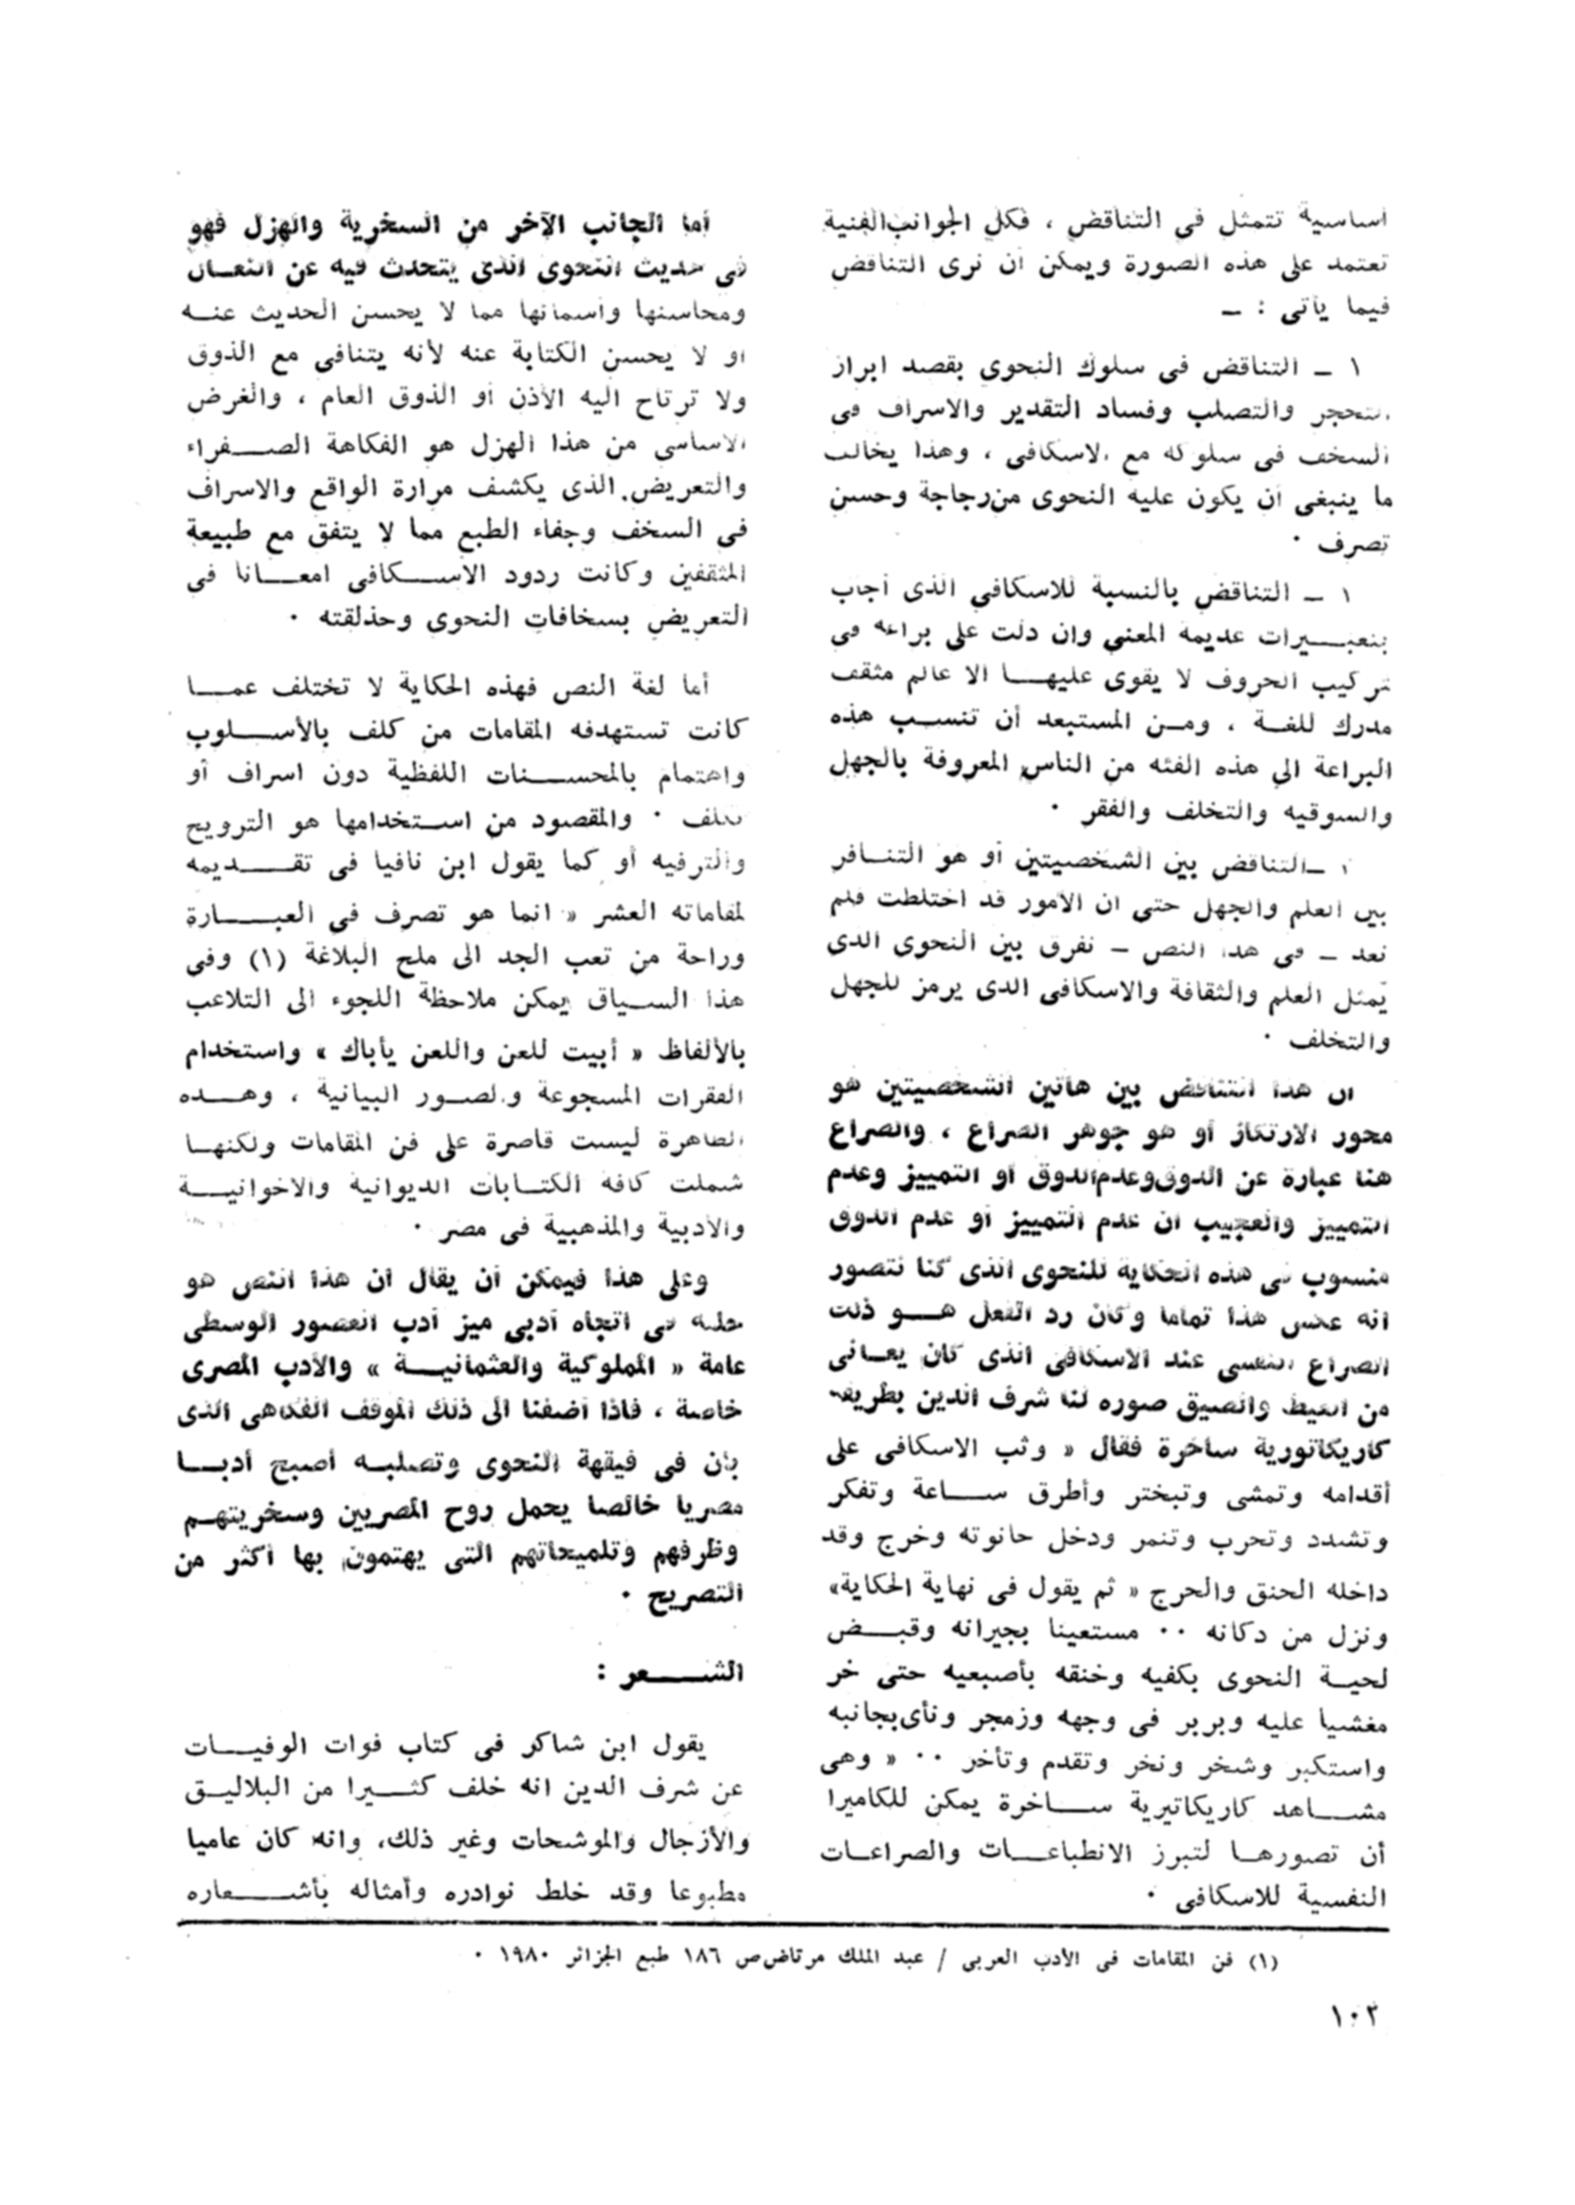 أساسية تتمثل في التناقض ، فكل الجوانب الفنية
تعتمد على هذه الصورة ويمكن أن نرى التناقض
فيما يأتى : ــ
١ ــ التناقض فى سلوك النحوى بقصد ابراز
التحجر والتصلب وفساد التقدير والاسراف فى
السخف فى سلوكه مع الاسكافى ، وهذا يخالف
ما ينبغى أن يكون عليه النحوى من رجاجة وحسن
تصرف ٠
١ ــ التناقض بالنسبة للاسكافي الذى أجاب
بتعبيرات عديمة المعنى وان دلت على براعة فى
تركيب الحروف لا يقوى عليها الا عالم مثقف
مدرك للغة ، ومن المستبعد أن تنسب هذه
البراعة الى هذه الفئه من الناس المعروفة بالجهل
والسوقيه والتخلف والفقر ٠
ــ التناقض بين الشخصيتين أو هو التنافر
بين العلم والجهل حتى ان الأمور قد اختلطت فلم
نعد ــ فى هذا النص ــ نفرق بين النحوى الذى
يمثل العلم والثقافة والاسكافى الذى يرمز للجهل
والتخلف ٠
ان هذا التناقض بين هاتين الشخصيتين هو
محور الارتكاز أو هو جوهر الصراع ، والصراع
هنا عبارة عن الذوق وعدم الذوق أو التمييز وعدم
التمييز والعجيب ان عدم التمييز أو عدم الذوق
منسوب فى هذه الحكاية للنحوى الذى كنا نتصور
أنه عكس هذا تماما وكان رد الفعل هو ذلك
الصراع النفسى عند الاسكافى الذى كان يعانى
من الغيظ والضيق صوره لنا شرف الدين بطريقة
كاريكاتورية ساخرة فقال « وثب الاسكافى على
أقدامه وتمشى وتبختر وأطرق ساعة وتفكر
وتشدد وتحرب وتنمر ودخل حانوته وخرج وقد
داخله الحنق والحرج « ثم يقول فى نهاية الحكاية»
ونزل من دكانه ٠٠ مستعينا بجيرانه وقبض
لحية النحوى بكفيه وخنقه بأصبعيه حتى خر
مغشيا عليه وبربر فى وجهه وزمجر ونأى بجانبه
واستكبر وشخر ونخر وتقدم وتأخر ٠٠ « وهى
مشاهد كاريكاتيرية ساخرة يمكن للكاميرا
أن تصورها لتبرز الانطباعات والصراعات
النفسية للاسكافى ٠
أما الجانب الآخر من السخرية والهزل فهو
فى حديث النحوى الذى يتحدث فيه عن النعال
ومحاسنها وأسمائها مما لا يحسن الحديث عنه
أو لا يحسن الكتابة عنه لأنه يتنافى مع الذوق
ولا ترتاح اليه الأذن أو الذوق العام ، والغرض
الأساسى من هذا الهزل هو الفكاهة الصفراء
والتعريض الذى يكشف مرارة الواقع والاسراف
فى السخف وجفاء الطبع مما لا يتفق مع طبيعة
المثقفين وكانت ردود الاسكافى امعانا فى
التعريض بسخافات النحوى وحذلقته ٠
أما لغة النص فهذه الحكاية لا تختلف عما
كانت تستهدفه المقامات من كلف بالأسلوب
واهتمام بالمحسنات اللفظية دون اسراف أو
تكلف ٠ والمقصود من استخدامها هو الترويح
والترفيه أو كما يقول ابن نافيا فى تقديمه
لمقاماته العشر « انما هو تصرف فى العبارة
وراحة من تعب الجد الى ملح البلاغة (١) وفى
هذا السياق يمكن ملاحظة اللجوء الى التلاعب
بالألفاظ « أبيت للعن واللعن يأباك » واستخدام
الفقرات المسجوعة والصور البيانية ، وهذه
الظاهرة ليست قاصرة على فن المقامات ولكنها
شملت كافة الكتابات الديوانية والاخوانية
والأدبية والمذهبية فى مصر ٠
وعلى هذا فيمكن أن يقال ان هذا النص هو
حلقة فى اتجاه أدبى ميز أدب العصور الوسطى
عامة « المملوكية والعثمانية » والأدب المصرى
خاصة ، فاذا أضفنا الى ذلك الموقف الفكاهى الذى
بان فى فيقهة النحوى وتصلبه أصبح أدبا
مصريا خالصا يحمل روح المصريين وسخريتهم
وظرفهم وتلميحاتهم التى يهتمون بها أكثر من
التصريح ٠
الشعر :
يقول ابن شاكر فى كتاب فوات الوفيات
عن شرف الدين انه خلف كثيرا من البلاليق
والأزجال والموشحات وغير ذلك، وانه كان عاميا
مطبوعا وقد خلط نوادره وأمثاله بأشعاره
(١) فن المقامات فى الأدب العربى / عبد الملك مرتاض ص ١٨٦ طبع الجزائر ١٩٨٠ ٠
١٠٢